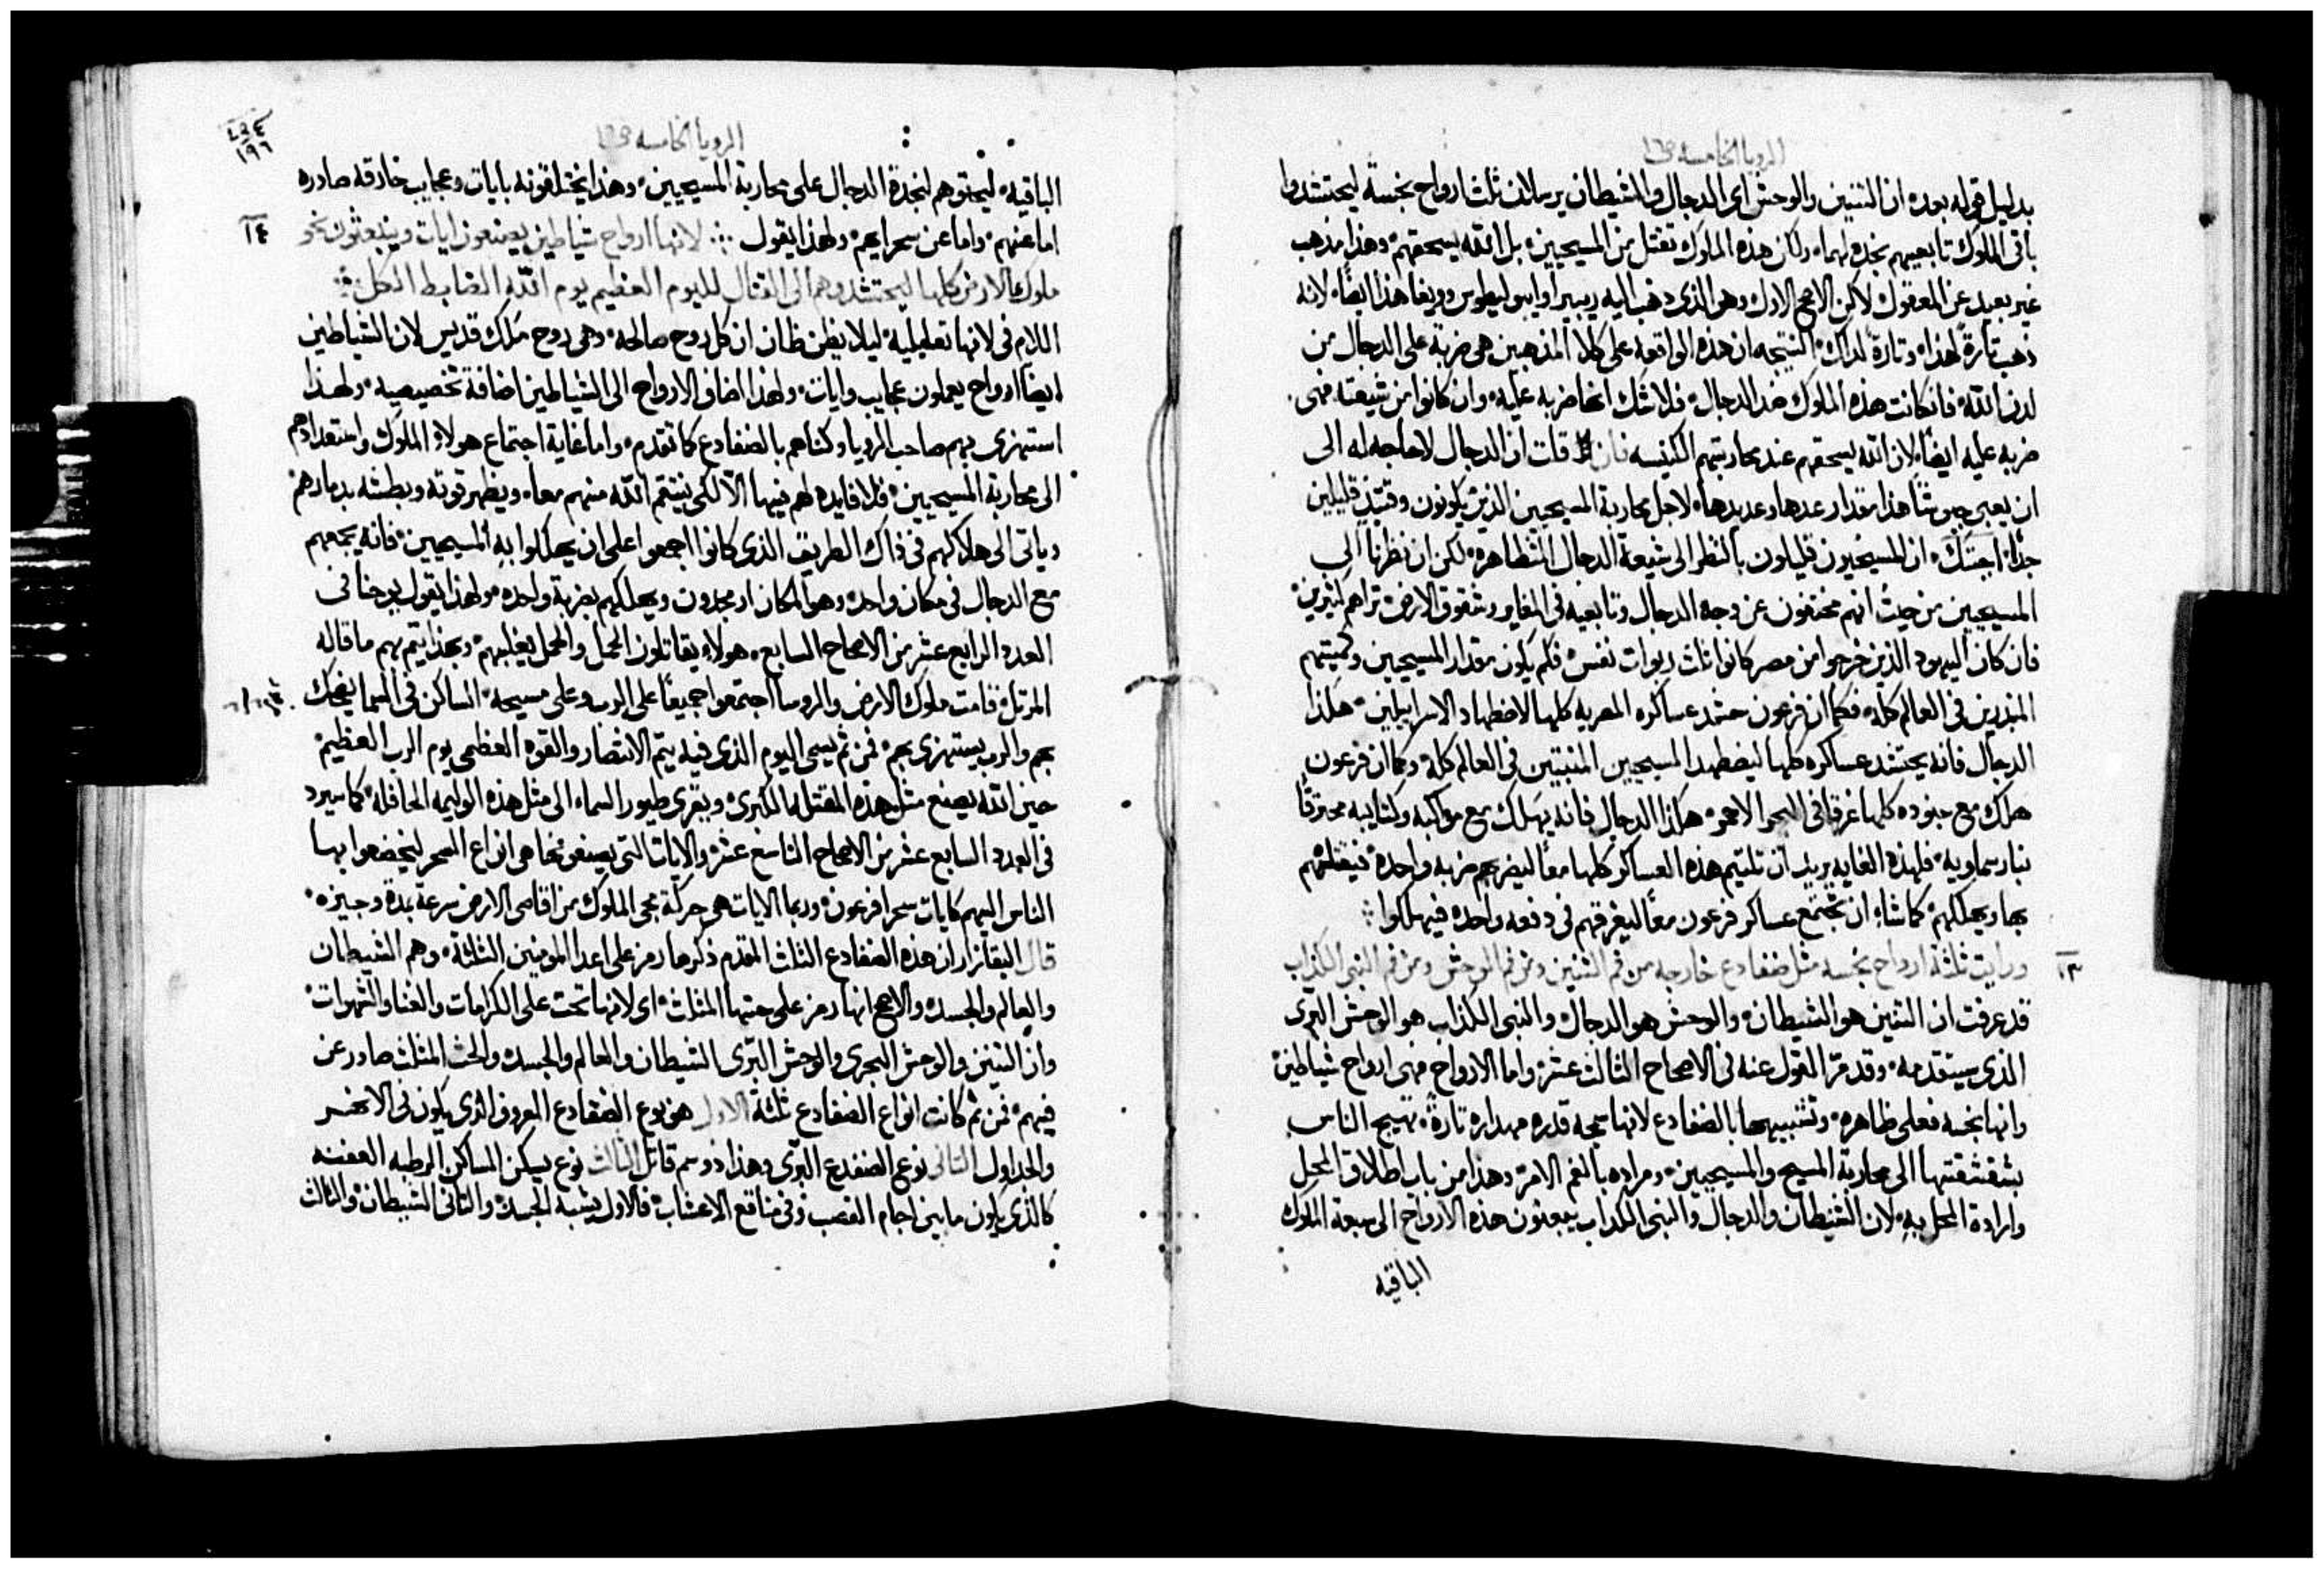 الرويا الخامسه ص١٦
بدليل قوله بعده ان التنين والوحش اى الدجال والشيطان يرسلان ثلث ارواح نجسة ليحتشدوا
باقى الملوك تابعيهم نجدة لهما، ولكن هذه الملوك تقتل من المسيحيين، بل الله يسحقهم، وهذا مذهب
غير بعيد عن المعقول لاكن الاصح الاول وهو الذى ذهب اليه ريبيرا وايبوليطوس وويغا هذا ايضًا، لانه
ذهب تارةً لهذا، وتارةً لذاك، النتيجه ان هذه الواقعه على كلا المذهبين هى ضربة على الدجال من
لدن الله، فان كانت هذه الملوك ضد الدجال، فلا شك انها ضربه عليه، وان كانوا من شيعته، فهى
ضربه عليه ايضًا، لان الله يسحقهم عند محاربتهم الكنيسه فان قلت ان الدجال لا حاجه له الى
ان يعبى جيوشًا هذا مقدار عدها وعديدها، لاجل محاربة المسيحيين الذين يكونون وقتئذٍ قليلين
جدًا، اجبتك، ان المسيحيون قليلون بالنظر الى شيعة الدجال المتظاهرة، لكن ان نظرنا الى
المسيحيين من حيثُ انهم مختفون عن وجه الدجال وتابعيه فى المغاير وشقوق الارض، تراهم كثيرين،
فان كان اليهود الذين خرجوا من مصر كانوا ثلث ربوات نفس، فكم يكون مقدار المسيحيين وكميتهم
المبذرين فى العالم كله، فكما ان فرعون حشد عساكره المصريه كلها لاضطهاد الاسراييليين، هكذا
الدجال فانه يحتشد عساكره كلها ليضطهد المسيحيين المنبثين فى العالم كله، وكما ان فرعون
هلك مع جنوده كلها غرقًا فى البحر الاحمر، هكذا الدجال فانه يهلك مع مواكبه وكتايبه محترقًا
بنار سماويه، فلهذه الغايه يريد ان تلتيم هذه العساكر كلها معًا ليضربهم ضربه واحدة، فيقتلهم
بها ويهلكهم، كما شاء ان تجتمع عساكر فرعون معًا ليغرقهم فى دفعه واحده فيهلكوا
١٣ ورايت ثلثة ارواح نجسه مثل ضفادع خارجه من فم التنين ومن فم الوحش ومن فم النبى الكذاب
قد عرفت ان التنين هو الشيطان، والوحش هو الدجال، والنبى الكذاب هو الوحش البرى
الذى سيتقدمه، وقد مرّ القول عنه فى الاصحاح الثالث عشر، واما الارواح فهى ارواح شياطين،
وانها نجسه فعلى ظاهره، وتشبيهها بالضفادع لانها سمجه قذره مهداره تارةً، تهيج الناس
بشقشقتها الى محاربة المسيح والمسيحيين، ومراده بالفم الامر، وهذا من باب اطلاق المحل
وارادة المحل به، لان الشيطان والدجال والنبى الكداب يبعثون هذه الارواح الى سبعة الملوك
الباقيه
الرويا الخامسه ص١٦
١٩٦
الباقيه، ليحثوهم لنجدة الدجال على محاربة المسيحيين، وهذا يختلقونه بايات وعجايب خارقه صادره
اما عنهم، واما عن سحرايهم، ولهذا يقول لانها ارواح شياطين يصنعون ايات وينبعثون نحو ١٤
ملوك الارض كلها ليحتشدوهم الى القتال لليوم العظيم يوم الله الضابط الكل
اللام فى لانها تعليليه، ليلا يظن ظان ان كل روح صالحه، وهى روح ملك قديس لان الشياطين
ايضًا ارواح يعملون عجايب وايات، ولهذا اضاف الارواح الى الشياطين اضافة تخصيصيه، ولهذا
استهزى بهم صاحب الرويا وكناهم بالضفادع كما تقدم، واما غاية اجتماع هولاء الملوك واستعدادهم
الى محاربة المسيحيين، فلا فايده لهم فيها الا لكى ينتقم الله منهم معا، ويظهر قوته وبطشه بدمارهم،
وياتى الى هلاكهم فى ذاك الطريق الذى كانوا اجمعوا على ان يهلكوا به المسيحيين، فانه يجمعهم
مع الدجال فى مكان واحد، وهو المكان ارمجدون ويهلكهم بضربة واحده، ولهذا يقول يوحنا فى
العدد الرابع عشر من الاصحاح السابع، هولاء يقاتلون الحمل والحمل يغلبهم، وبهذا يتم بهم ما قاله
المرتل، قامت ملوك الارض والروسا اجتمعوا جميعًا على الرب وعلى مسيحه، الساكن فى السما يضحك
بهم والرب يستهزى بهم، فمن ثم يسمى اليوم الذى فيه يتم الانتصار والقوه العظمى يوم الرب العظيم،
حين الله يصنع مثل هذه المقتله الكبرى، ويقرى طيور السماء الى مثل هذه الوليمه الحافله، كما سيرد
فى العدد السابع عشر من الاصحاح التاسع عشر، والايات التى يصنعونها هى انواع السحر ليخضعوا بها
الناس اليهم كايات سحرا فرعون، وربما الايات هى حركة مجى الملوك من اقاصى الارض سرعة بمدة وجيزه،
قال البقانزار ان هذه الضفادع الثلث المقدم ذكرها رمز على اعدا المومنين الثلثة، وهم الشيطان
والعالم والجسد، والاصح انها رمز على حثها المثلث، اى لانها تحث على الكرامات والغنا والشهوات،
وان التنين والوحش البحرى والوحش البرى الشيطان والعالم والجسد، والحث المثلث صادر عن
فيهم، فمن ثم كانت انواع الضفادع ثلثة الاول هو نوع الضفادع المعروف الذى يكون فى الانهر
والجداول الثانى نوع الضفدع البرى وهذا ذو سم قاتل الثالث نوع يسكن المساكن الرطبه العفنه
كالذى يكون مابين اجام القصب وفى مناقع الاعشاب، فالاول يشبه الجسد، والثانى الشيطان، والثالث